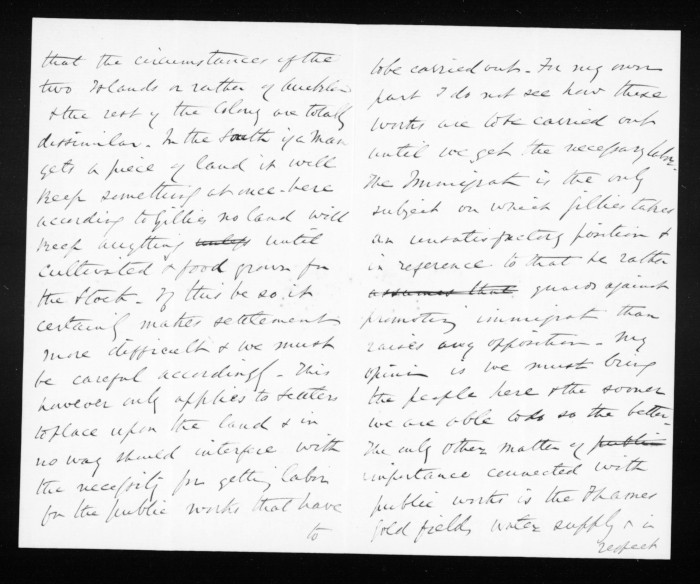 that the circumstances of the
two Islands or rather of Aucklan
& the rest of the Colony are totally
dissimilar. In the South if a man
gets a piece of land it will
keep something at once - here
according to Gillies no land will
keep anything unless until
cultivated & food grown for
the Stock - If this be so it
certainly makes settlement
more difficult & we must
be careful accordingly. This
however only applies to settlers
to place upon the land & in
no way should interfere with
the necessity for getting labor
for the public works that have
to
to be carried out - For my own
part I do not see how these
works are to be carried out
until we get the necessary labor.
The Immigrat is the only
subject on which Gillies takes
an unsatisfactory position &
in reference to that he rather
assumes that guards against
promoting immigrat than
raises any opposition - My
opinion is we must bring
the people here & the sooner
we are able to do so the better.
The only other matter of public
importance connected with
public works is the Thames
gold fields water supply & in
respect